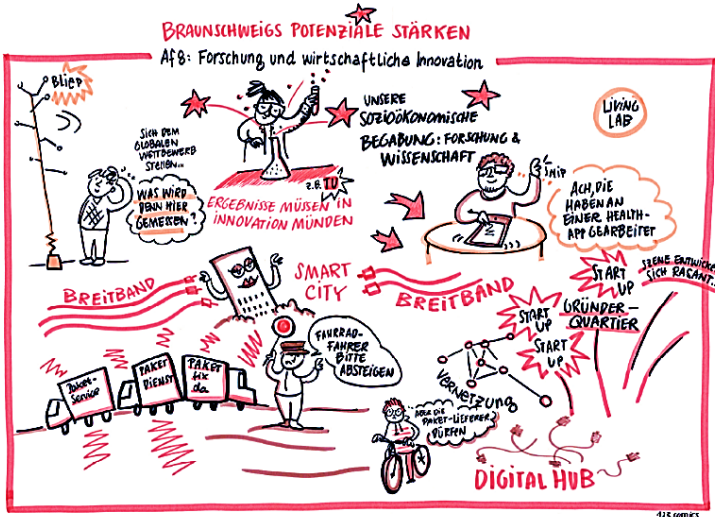 BRAUNSCHWEIGS POTENZIALE STÄRKEN
AF8: Forschung und wirtschaftliche Innovation
BLIEP
SICH DEM
GLOBALEN
WETTBEWERB
STELLEN...
WAS WIRD
DENN HIER
GEMESSEN?
z.B. TU
ERGEBNISSE MÜSSEN IN
INNOVATION MÜNDEN
UNSERE
SOZIOÖKONOMISCHE
BEGABUNG: FORSCHUNG &
WISSENSCHAFT
LIVING
LAB
WIP
ACH, DIE
HABEN AN
EINER HEALTH-
APP GEARBEITET
BREITBAND
SMART
CITY
BREITBAND
START
UP
SZENE ENTWICKE
SICH RASANT...
START
UP
GRÜNDER-
QUARTIER
START
UP
FAHRRAD-
FAHRER
BITTE
ABSTEIGEN
Paket-
Service
PAKET
DIENST
PAKET
fix
da
VERNETZUNG
ABER DIE
PAKET-LIEFERER
DÜRFEN?
DIGITAL HUB
123 comics